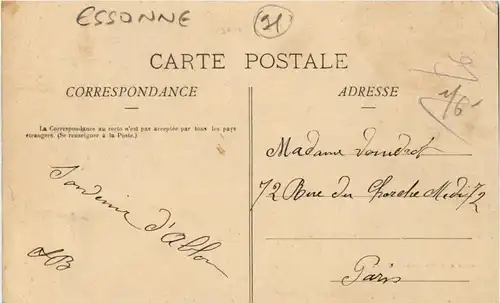 ESSONNE
91
CARTE POSTALE
CORRESPONDANCE
La Correspondance au recto n'est pas acceptée par tous les pays
étrangers. (Se renseigner à la Poste.)
Souvenir d'Ablon
ADRESSE
Madame
72 Rue du Cherche Midi 72
Paris